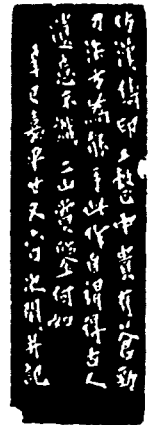 仿漢鑄印工整中貴有蒼勁
刀法方為能手此作自謂得古人
遺意不識二山賞鑒何如
辛巳嘉平廿又六日并記